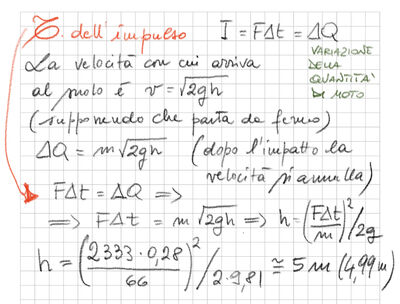 T. dell'impulso I = FΔt = ΔQ
VARIAZIONE
DELLA
QUANTITA'
DI MOTO
La velocità con cui arriva
al suolo è v = √2gh
(supponendo che parta da fermo)
ΔQ = m√2gh (dopo l'impatto la
velocità si annulla)
FΔt = ΔQ =>
=> FΔt = m√2gh => h = (FΔt/m)²/2g
h = (2333·0,28/66)²/2·9,81 ≅ 5 m (4,99 m)